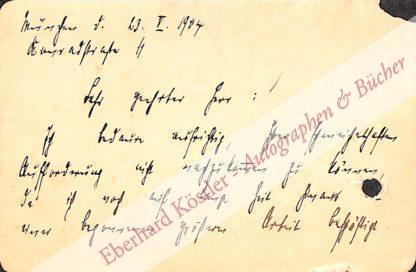 München d. 23. V. 1904
Konradstraße 11
Sehr geehrter Herr :
Ich bedaure aufrichtig, Ihrer schmeichelhaften
Aufforderung nicht nachzukommen zu können,
da ich noch auf lange Zeit hinaus mit
einer begonnenen größern Arbeit beschäftigt
Eberhard Köstler - Autographen & Bücher